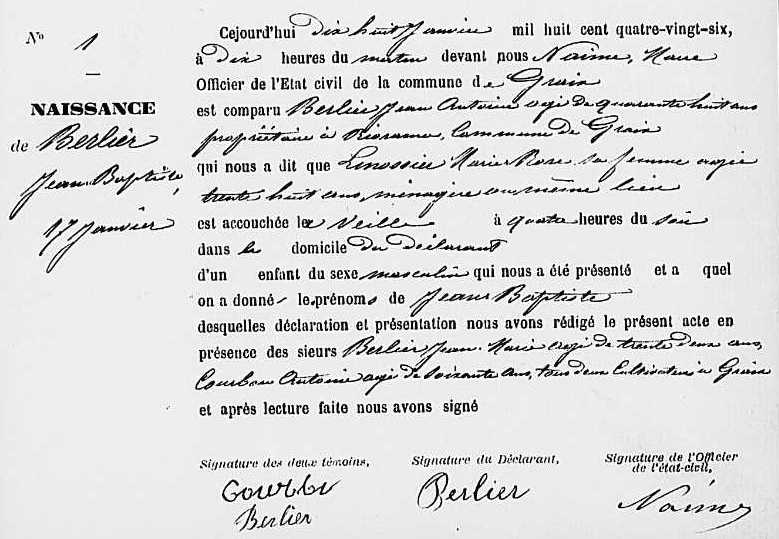 No 1
NAISSANCE
de Berlier
Jean Baptiste,
17 Janvier
Cejourd'hui dix huit Janvier mil huit cent quatre-vingt-six,
à dix heures du matin devant nous Naime, Maire
Officier de l'Etat civil de la commune de Graix
est comparu Berlier Jean Antoine agé de quarante huit ans
propriétaire à Commune de Graix
qui nous a dit que Linossier Marie Rose sa femme agée
trente huit ans, ménagère au même lieu
est accouchée la Veille à quatre heures du soir
dans le domicile du déclarant
d'un enfant du sexe masculin qui nous a été présenté et a quel
on a donné les prénoms de Jean Baptiste
desquelles déclaration et présentation nous avons rédigé le présent acte en
présence des sieurs Berlier Jean Marie agé de trente deux ans,
Courbon Antoine agé de soixante ans, tous deux Cultivateurs à Graix
et après lecture faite nous avons signé
Signature des deux témoins,
Berlier
Signature du Déclarant,
Berlier
Signature de l'Officier
de l'état-civil,
Naime